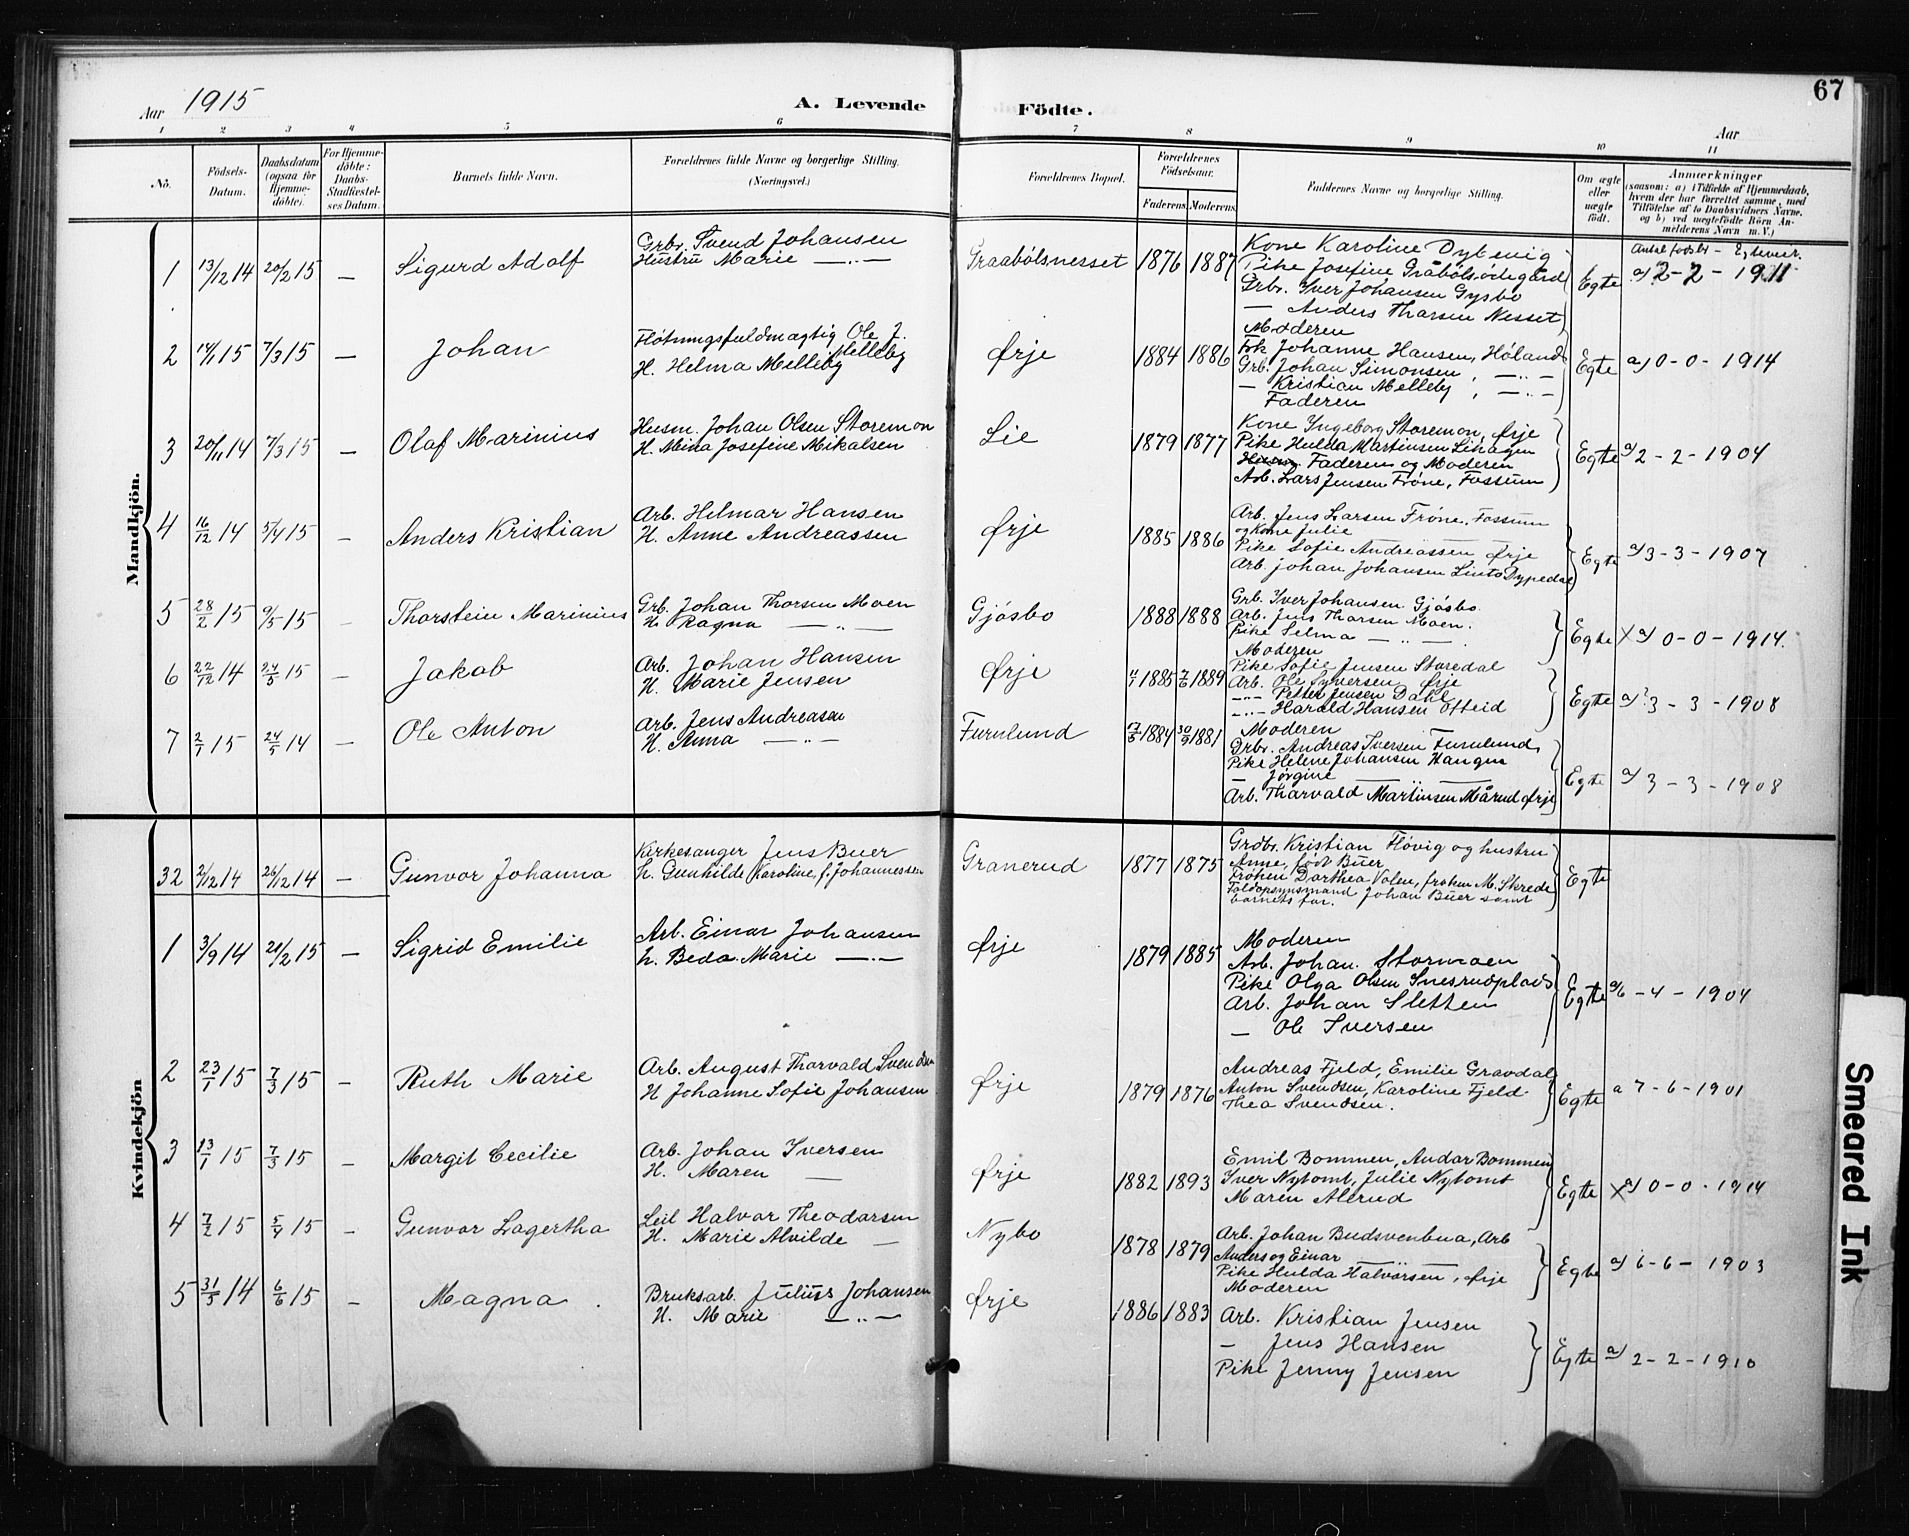 67
Aar 1915
A. Levende Födte.
Aar
1 2 3 4 5 6 7 8 9 10 11
No.
Födsels-Datum.
Daabsdatum (ogsaa for Hjemme-döbte).
For Hjemme-döbte: Daabs-Stadfæstel-ses Datum.
Barnets fulde Navn.
Forældrenes fulde Navne og borgerlige Stilling. (Næringsvei.)
Forældrenes Bopæl.
Forældrenes Födselsaar.
Faderens. Moderens.
Faddernes Navne og borgerlige Stilling.
Om ægte eller uægte födt.
Anmærkninger
(saasom: a) i Tilfælde af Hjemmedaab, hvem der har forrettet samme, med Tilföielse af to Daabsvidners Navne, og b) ved uægtefödte Börn Anmelderens Navn m. V.)
Mandkjön.
1 13/12 14 20/2 15 — Sigurd Adolf
Grbr. Svend Johansen
Hustru Marie —„—
Graabølsnesset 1876 1887
Kone Karoline Dybevig
Pike Josefine Gråbølsødegård
Grbr. Iver Johansen Gysbo
— Anders Thorsen Nesset
Moderen
Egte
a) 2-2-1911
2 14/1 15 7/3 15 — Johan
Fløtningsfuldmægtig Ole J. Melleby
H. Helma Melleby
Ørje 1884 1886
Frk Johanne Hansen, Høland
Grb. Johan Simonsen, —„—
— Kristian Melleby, —„—
Faderen
Egte a) 0-0-1914
3 20/11 14 7/3 15 — Olaf Marinius
Husm. Johan Olsen Storemon
H. Mina Josefine Mikalsen
Lie 1879 1877
Kone Ingeborg Storemon, Ørje
Pike Hulda Martinsen Lihagen
Faderen og Moderen
Arb. Lars Jensen Frøne, Fossum
Egte a) 2-2-1904
4 16/12 14 5/4 15 — Anders Kristian
Arb. Helmar Hansen
H. Anne Andreassen
Ørje 1885 1886
Arb. Jens Larsen Frøne, Fossum
og Kone Julie
Pike Sofie Andreassen Ørje
Arb. Johan Johansen
Egte a) 3-3-1907
5 28/2 15 9/5 15 — Thorstein Marinius
Grb. Johan Thorsen Moen
H. Ragna —„—
Gjösbo 1888 1888
Grb. Iver Johansen Gjösbo
Arb. Jens Thorsen Moen.
Pike Selma —„—
Moderen
Egte X a) 0-0-1914.
6 22/12 14 24/5 15 — Jakob
Arb. Johan Hansen
H. Marie Jensen
Ørje 1885 1889
Pike Sofie Jensen Storedal
Arb. Ole Syversen Ørje
—„— Petter Jensen Dahl
—„— Harald Hansen Otteid
Egte a) 3-3-1908
7 2/1 15 24/5 14 — Ole Anton
Arb. Jens Andreasen
H. Anna —„—
Furulund 1884 1881
Moderen
Grbr. Andreas Iversen Furulund,
Pike Helene Johansen Haugen
— Jørgine —
Arb. Thorvald Martinsen Mårud Ørje
Egte a) 3-3-1908
Kvindekjön
32 2/12 14 26/12 14 — Gunvor Johanna
Kirkesanger Jens Buer
h. Gunhilde Karoline, f. Johannessen
Granerud 1877 1875
Grdbr. Kristian Fløvig og hustru
Anne, født Buer
Frøken Dorthea Volen, frøken M. Skrede
Toldopsynsmand Johan Buer samt
barnets far.
Egte
1 3/9 14 20/2 15 — Sigrid Emilie
Arb. Einar Johansen
h. Beda Marie —„—
Ørje 1879 1885
Moderen
Arb. Johan Stormoen
Pike Olga Olsen Snesrudplads
Arb. Johan Sletten
— Ole Iversen
Egte a) 6-4-1904
2 23/1 15 7/3 15 — Ruth Marie
Arb. August Thorvald Svendsen
H Johanne Sofie Johansen
Ørje 1879 1876
Andreas Fjeld, Emilie Gravdal
Anton Svendsen, Karoline Fjeld
Thea Svendsen.
Egte a 7-6-1901
3 13/1 15 7/3 15 — Margit Cecilie
Arb. Johan Iversen
H. Maren —
Ørje 1882 1893
Emil Bommen, Andor Bommen
Iver Nytomt, Julie Nytomt
Maren Alerud
Egte X a) 0-0-1914
4 7/2 15 5/4 15 — Gunvor Lagertha
Leil Halvor Theodorsen
H. Marie Alvilde —
Nybo 1878 1879
Arb. Johan Budsvenbua, Arb
Anders og Einar —„—
Pike Hulda Halvorsen, Ørje
Moderen
Egte a) 6-6-1903
5 31/3 14 6/6 15 — Magna
Bruksarb. Julius Johansen
H. Marie —„—
Ørje 1886 1883
Arb. Kristian Jensen
— Jens Hansen
Pike Jenny Jensen
Egte a) 2-2-1910
Smeared Ink